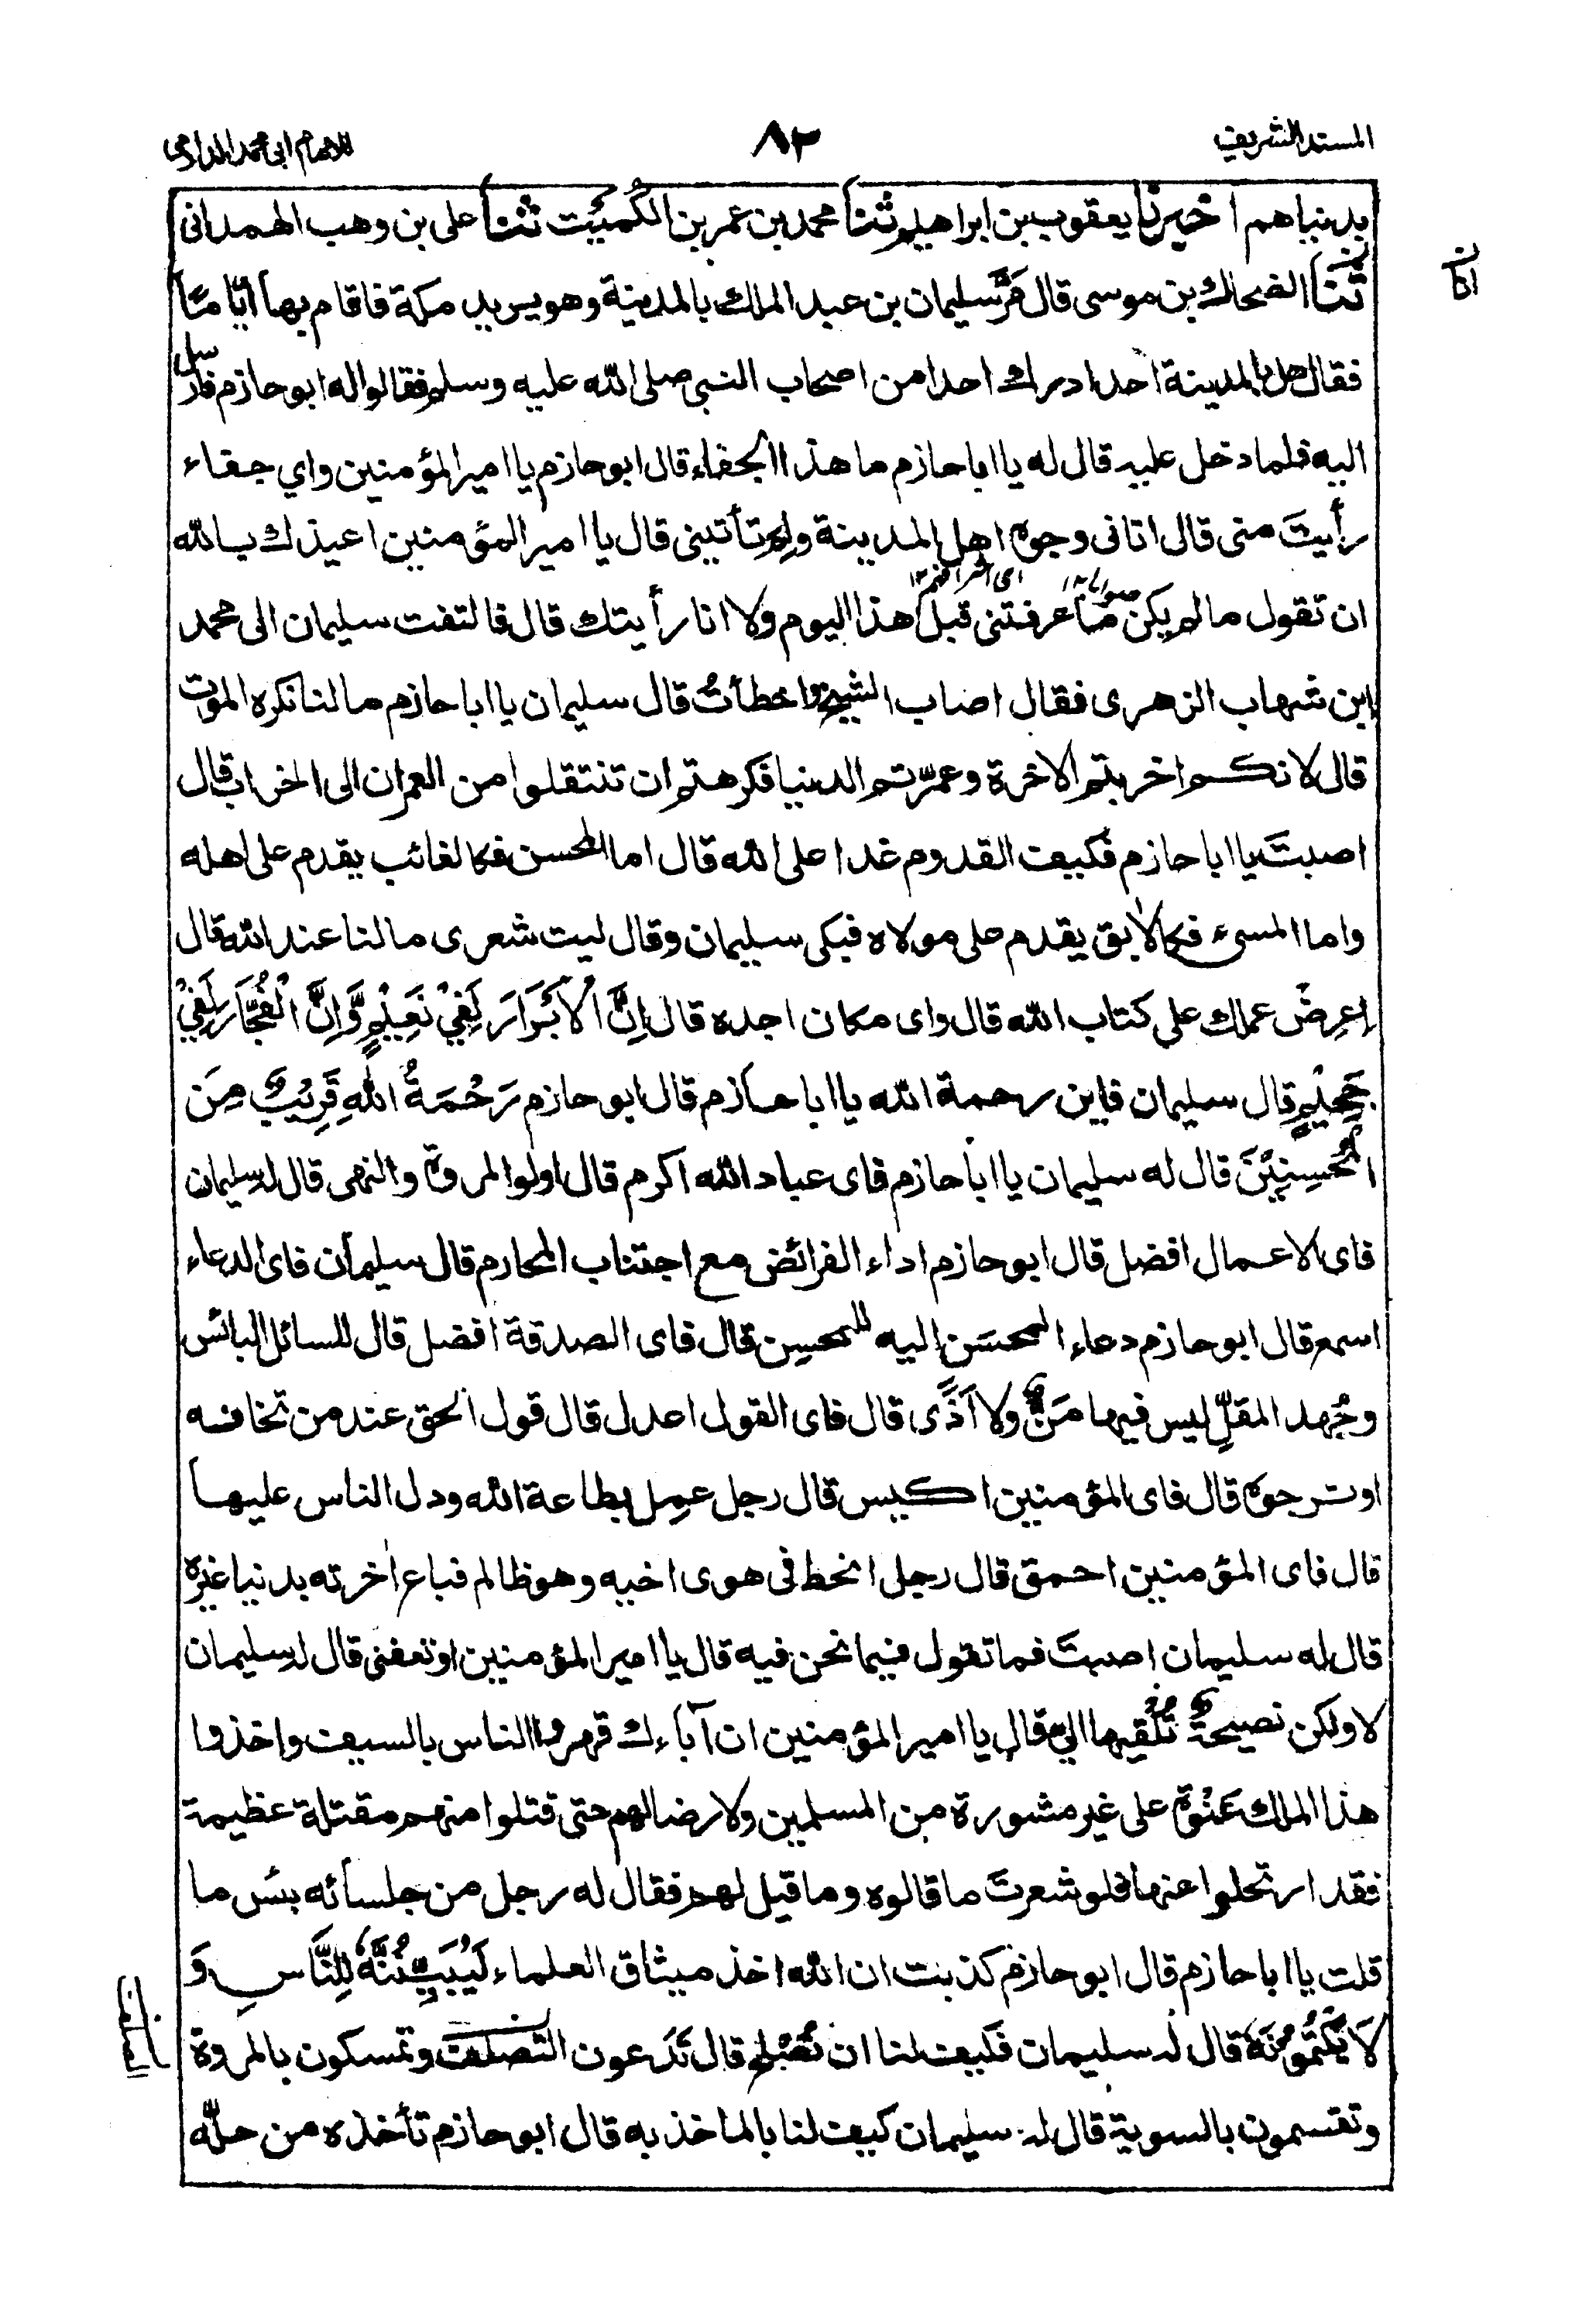 المسند الشريف
٨٢
للامام ابي محمد الدارمي
بدنياهم اخبرنا يعقوب بن ابراهيم ثنا محمد بن عمر بن الكُمَيْت ثنا على بن وهب الهمدانى
ثنا الضحاك بن موسى قال مَرَّ سليمان بن عبد الملك بالمدينة وهو يريد مكة فاقام بها أيّاما
فقال هل بالمدينة احد ادرك احدا من اصحاب النبي صلى الله عليه وسلم فقالوا له ابو حازم فارسل
اليه فلما دخل عليه قال له يا ابا حازم ما هذا الجفاء قال ابو حازم يا امير المؤمنين واي جفاء
رأيتَ منى قال اتانى وجوه اهل المدينة ولم تأتينى قال يا امير المؤمنين اعيذك بالله
اى اشرافهم ١٢
ان تقول ما لم يكن ما عرفتنى قبل هذا اليوم ولا انا رأيتك قال فالتفت سليمان الى محمد
ابن شهاب الزهرى فقال اصاب الشيخ واخطأتُ قال سليمان يا ابا حازم ما لنا نكره الموت
قال لانكم اخربتم الاخرة وعمّرتم الدنيا فكرهتم ان تنتقلوا من العمران الى الخراب قال
اصبتَ يا ابا حازم فكيف القدوم غدا على الله قال اما المحسن فكالغائب يقدم على اهله
واما المسىء فكالآبق يقدم على مولاه فبكى سليمان وقال ليت شعرى ما لنا عند الله قال
اِعرِضْ عملك على كتاب الله قال واى مكان اجده قال اِنَّ الْاَبْرَارَ لَفِيْ نَعِيْمٍ وَّاِنَّ الْفُجَّارَ لَفِيْ
جَحِيْمٍ قال سليمان فاين رحمة الله يا ابا حازم قال ابو حازم رَحْمَةُ اللهِ قَرِيْبٌ مِنَ
الْمُحْسِنِيْنَ قال له سليمان يا ابا حازم فاى عباد الله اكرم قال اولوا المروة والنهى قال له سليمان
فاى الاعمال افضل قال ابو حازم اداء الفرائض مع اجتناب المحارم قال سليمان فاى الدعاء
اسمع قال ابو حازم دعاء المحسَن اليه للمحسِن قال فاى الصدقة افضل قال للسائل البائس
وجُهد المقلّ ليس فيها مَنٌّ ولا اَذًى قال فاى القول اعدل قال قول الحق عند من تخافه
او ترجوه قال فاى المؤمنين اكيس قال رجل عمِل بطاعة الله ودل الناس عليها
قال فاى المؤمنين احمق قال رجل انحط فى هوى اخيه وهو ظالم فباع آخرته بدنيا غيره
قال له سليمان اصبتَ فما تقول فيما نحن فيه قال يا امير المؤمنين اوتعفنى قال له سليمان
لا ولكن نصيحةٌ تُلْقيها اليّ قال يا امير المؤمنين ان آباءك قهروا الناس بالسيف واخذوا
هذا الملك عَنْوة على غير مشورة من المسلمين ولا رضا لهم حتى قتلوا منهم مقتلة عظيمة
فقد ارتحلوا عنها فلو شعرتَ ما قالوه وما قيل لهم فقال له رجل من جلسائه بئس ما
قلت يا ابا حازم قال ابو حازم كذبت ان الله اخذ ميثاق العلماء لَيُبَيِّنُنَّهُ لِلنَّاسِ وَ
لَا يَكْتُمُوْنَهُ قال له سليمان فكيف لنا ان نُصْلح قال تَدَعون التصلف وتمسكون بالمروة
وتقسمون بالسوية قال له سليمان كيف لنا بالماخذ به قال ابو حازم تأخذه من حلّه